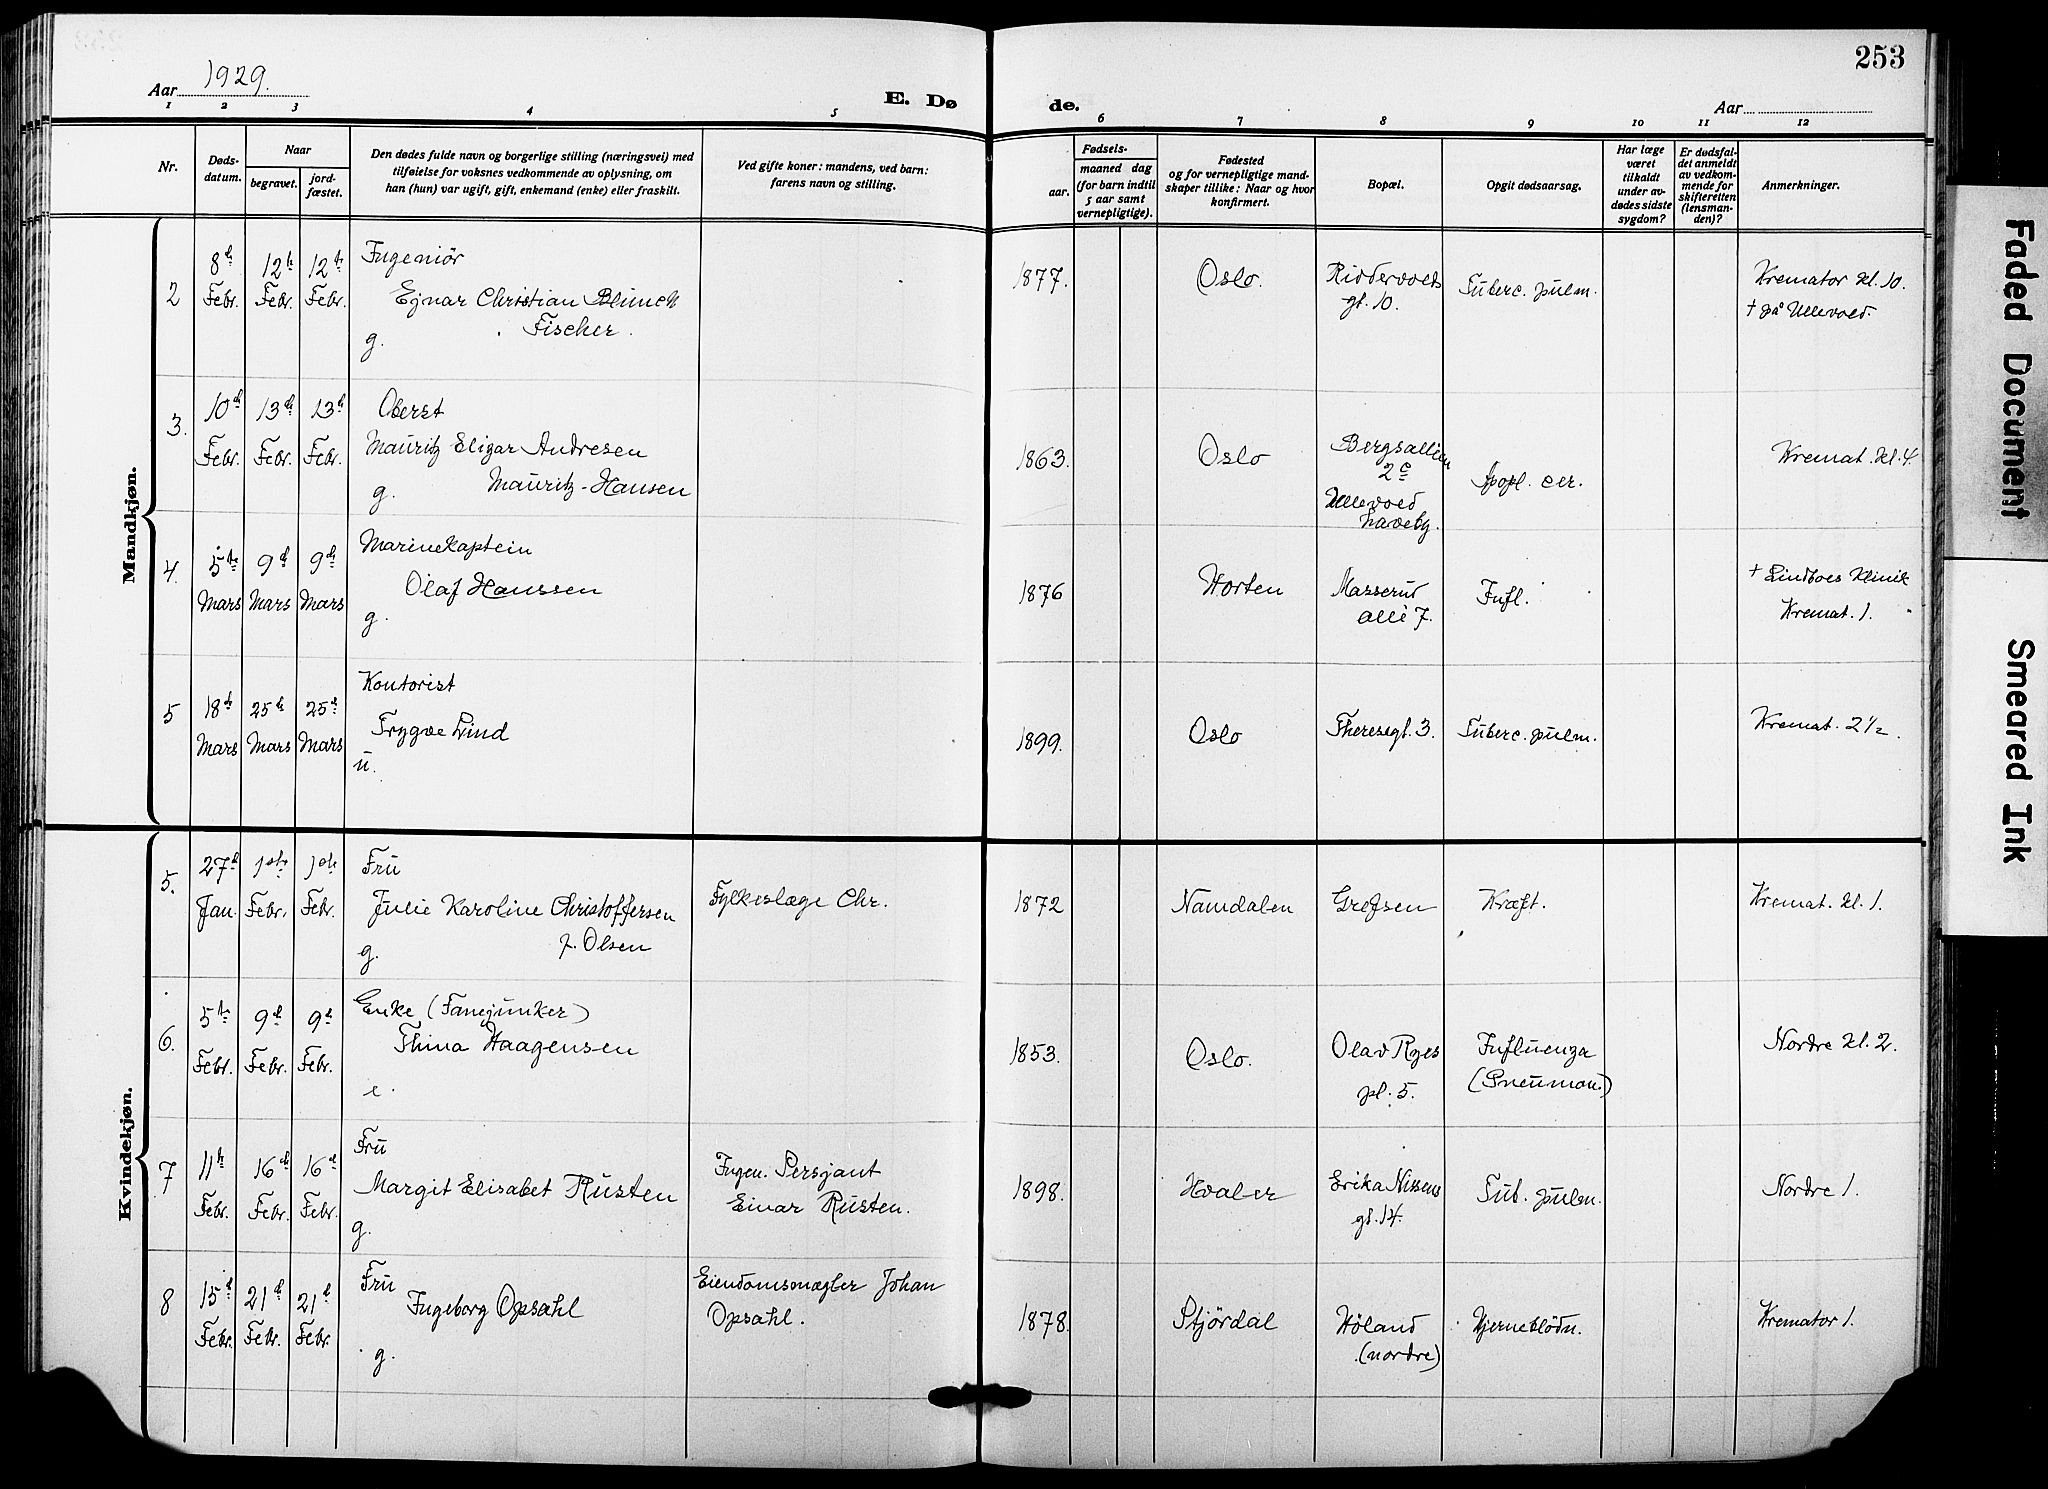 253
Aar 1929.
E. Døde.
Aar
1 2 3 4 5 6 7 8 9 10 11 12
Nr.
Dødsdatum.
Naar
begravet.
jordfæstet.
Den dødes fulde navn og borgerlige stilling (næringsvei) med
tilføielse for voksnes vedkommende av oplysning, om
han (hun) var ugift, gift, enkemand (enke) eller fraskilt.
Ved gifte koner: mandens, ved barn:
farens navn og stilling.
Fødsels-
aar.
maaned dag
(for barn indtil
5 aar samt
vernepligtige).
Fødested
og for vernepligtige mand-
skaper tillike: Naar og hvor
konfirmert.
Bopæl.
Opgit dødsaarsag.
Har læge
været
tilkaldt
under av-
dødes sidste
sygdom?
Er dødsfal-
det anmeldt
av vedkom-
mende for
skifteretten
(lensman-
den)?
Anmerkninger.
Mandkjøn.
2
8de Febr.
12te Febr.
12te Febr.
Ingeniør
Ejnar Christian Blumch
Fischer.
g.
1877.
Oslo.
Riddervolds
gt. 10.
Tuberc. pulm.
Kremator kl. 10.
† på Ullevold.
3.
10de Febr.
13de Febr.
13de Febr.
Oberst
Mauritz Elizar Andresen
g. Mauritz-Hansen
1863.
Oslo
Bergsallien
2c
Ullevold
haveby.
Apopl. cer.
Kremat. kl. 4.
4.
5te Mars
9de Mars
9de Mars
Marinekaptein
Olaf Hanssen
g.
1876
Horten
Masserud
allé 7.
Infl.
† Lindboes Klinik
Kremat. 1.
5
18de Mars
25de Mars
25de Mars
Kontorist
Trygve Lind
u.
1899.
Oslo
Theresegt. 3.
Tuberc. pulm.
Kremat. 2½.
Kvindekjøn.
5.
27de Jan.
1ste Febr.
1ste Febr.
Fru
Julie Karoline Christoffersen
g. f. Olsen
Fylkeslæge Chr.
1872
Namdalen
Grefsen
Kræft.
Kremat. kl. 1.
6.
5te Febr.
9de Febr.
9de Febr.
Enke (Fanejunker)
Thina Haagensen
e.
1853.
Oslo.
Olav Ryes
pl. 5.
Influenza
(Pneumon.)
Nordre kl. 2.
7
11te Febr.
16de Febr.
16de Febr.
Fru
Margit Elisabet Rusten
g.
Ingen. Sersjant
Einar Rusten.
1898.
Hvaler
Erika Nissens
gt. 14.
Tub. pulm.
Nordre 1.
8
15de Febr.
21de Febr.
21de Febr.
Fru
Ingeborg Opsahl
g.
Eiendomsmægler Johan
Opsahl.
1878.
Stjördal
Høland
(nordre)
Hjerneblödn.
Kremator 1.
Faded Document
Smeared Ink